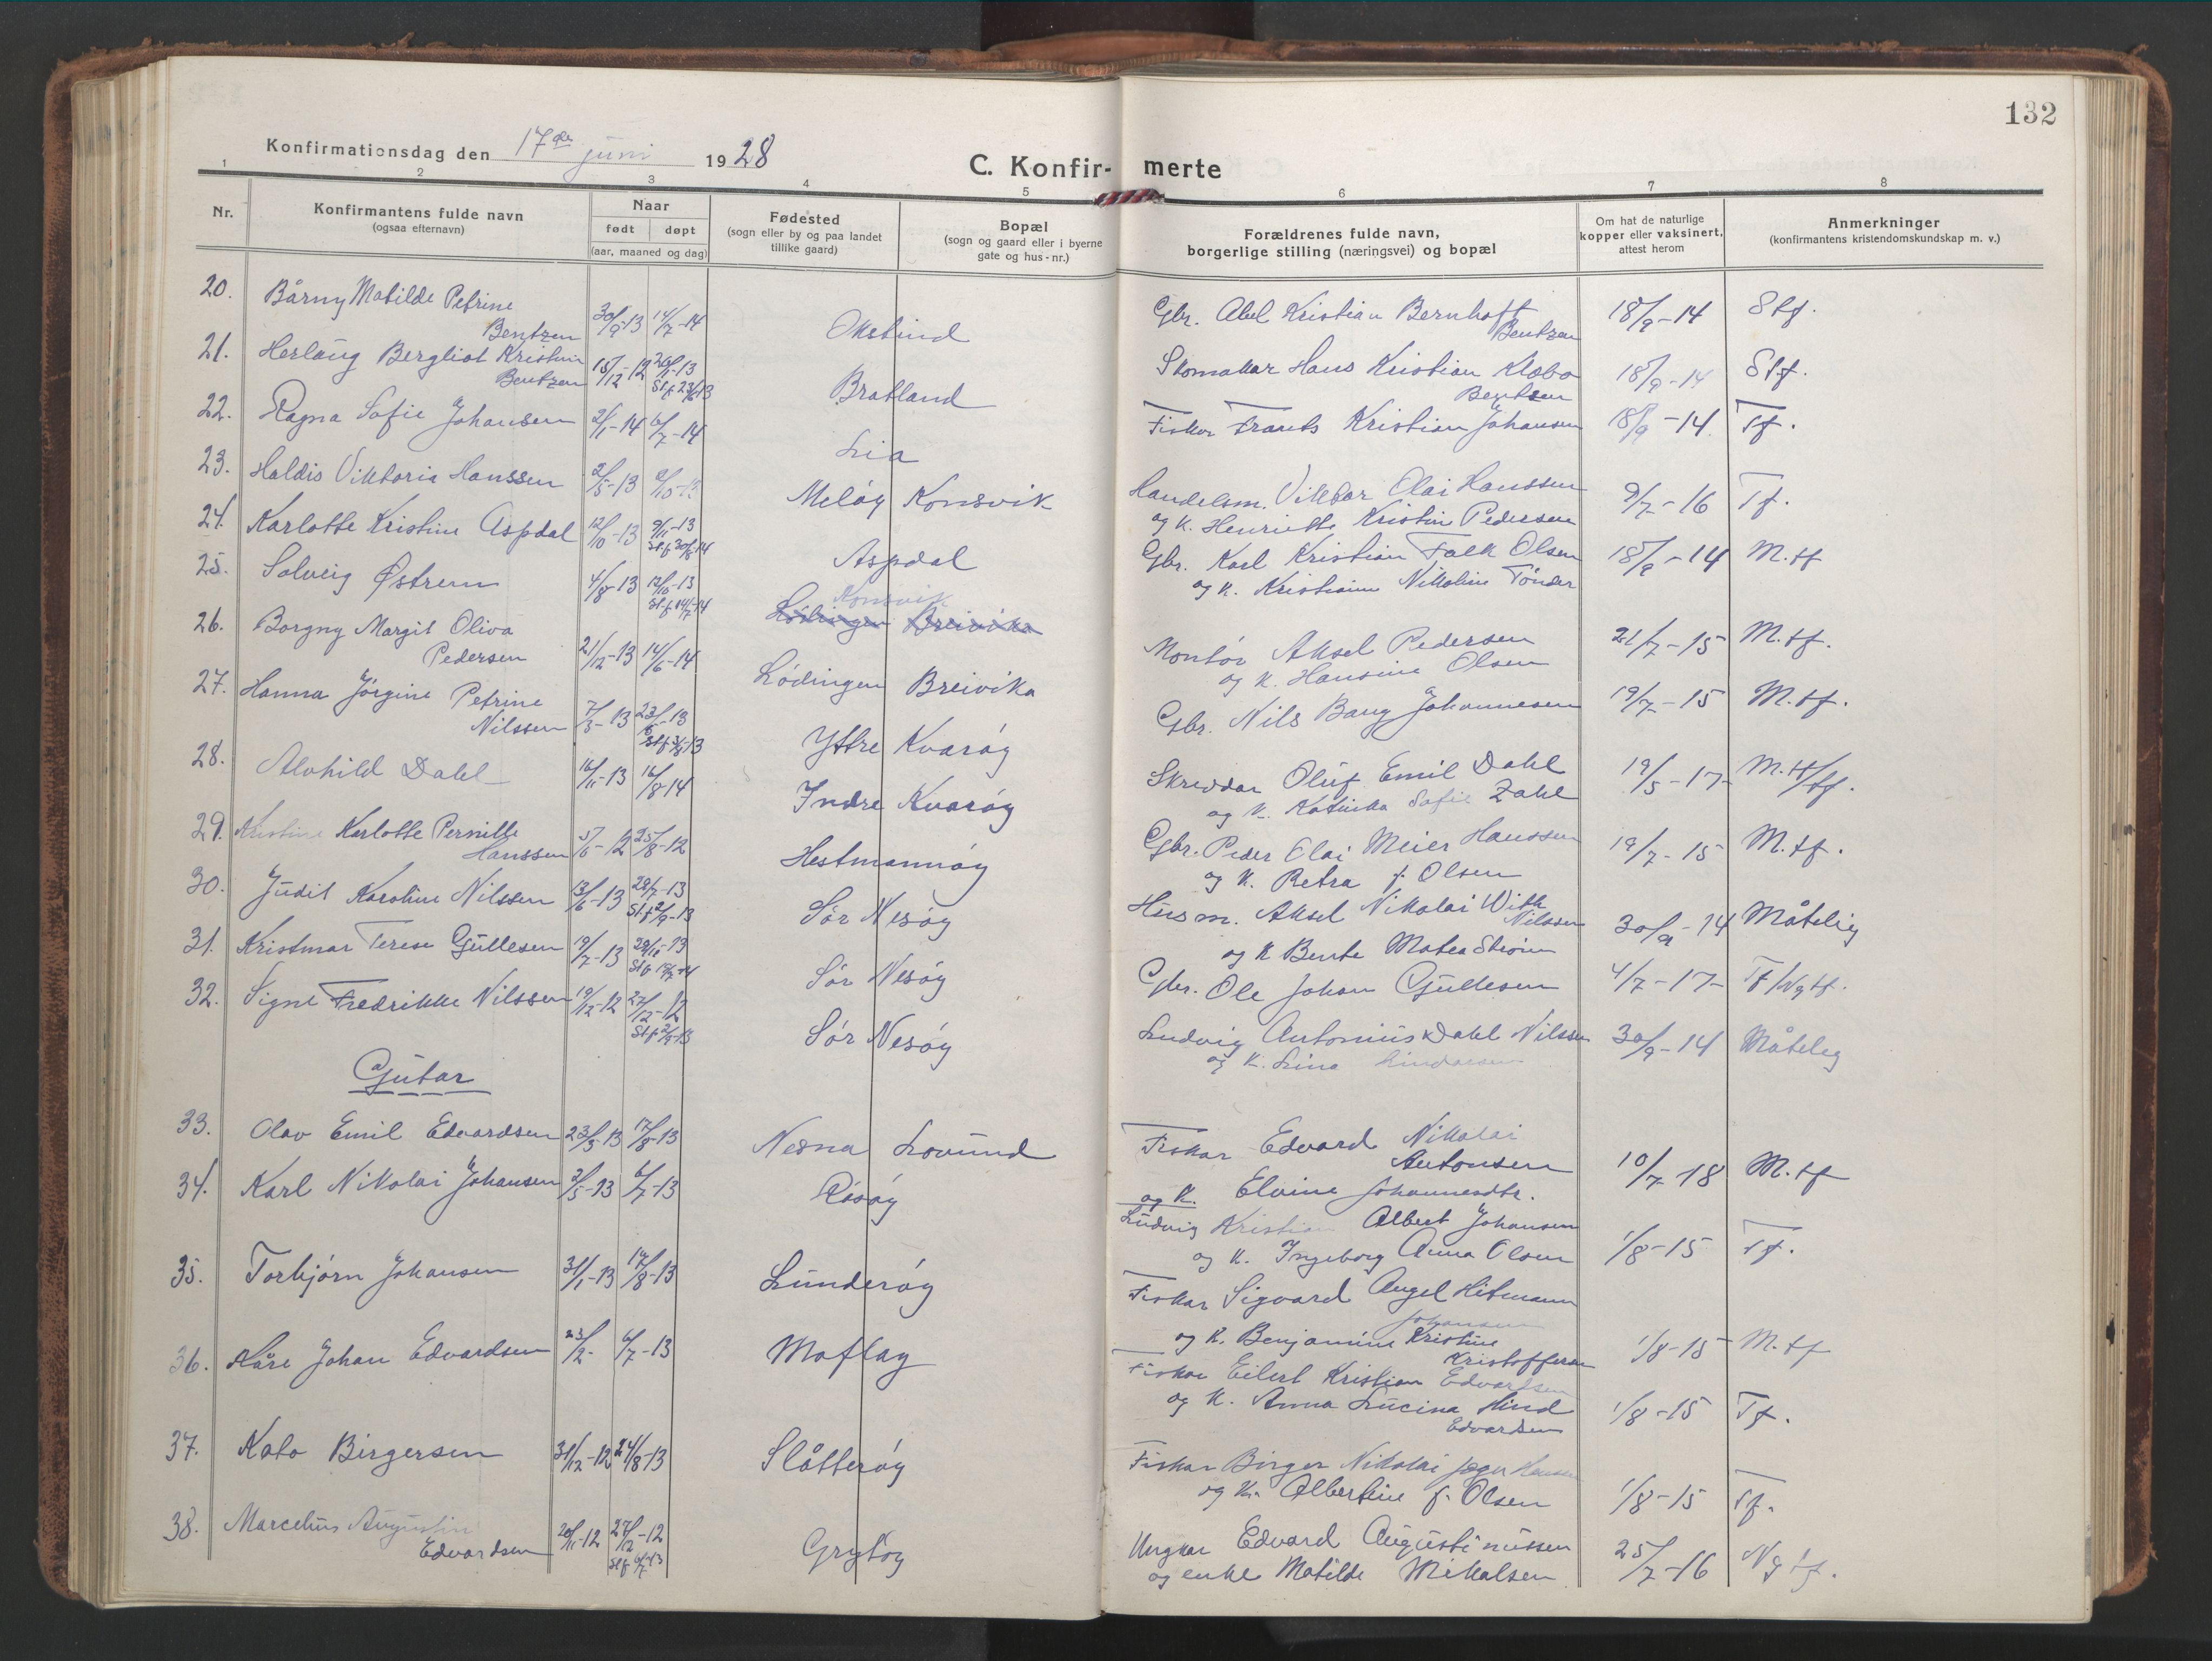 132
Konfirmationsdag den 17de juni 1928
C. Konfir- merte
1 2 3 4 5 6 7 8
Nr.
Konfirmantens fulde navn
(ogsaa efternavn)
Naar
født døpt
(aar, maaned og dag)
Fødested
(sogn eller by og paa landet
tillike gaard)
Bopæl
(sogn og gaard eller i byerne
gate og hus-nr.)
Forældrenes fulde navn,
borgerlige stilling (næringsvei) og bopæl
Om hat de naturlige
kopper eller vaksinert,
attest herom
Anmerkninger
(konfirmantens kristendomskundskap m. v.)
20. Bårny Matilde Petrine
Bentzen 30/9-13 14/7-14 Okstind Gbr. Abel Kristian Bernhoft
Bentzen 18/9-14 Stf.
21. Herlaug Bergliot Kristin
Bentzen 15/12-12 26/1-13 Bratland Skomakar Hans Kristian Klæbo
Bentzen 18/9-14 Stf.
22. Ragna Sofie Johansen 2/1-14 6/7-14 Lia Fisker Frants Kristian Johansen 18/9-14 Tf.
23. Haldis Viktoria Hanssen 2/5-13 Meløy Konsvik Handelsm. Viktor Olai Hanssen
og K. Henriette Kristine Pedersen 9/7-16 Tf.
24. Karlotte Kristine Aspdal 12/10-13 9/11-13
Stf 30/8-14 Aspdal Gbr. Karl Kristian Falk Olsen
og K. Kristianne Nikoline Tønder 18/9-14 M.tf
25. Solveig Østrem 4/8-13 12/10-13
Stf 14/7-14 Konsvik
Lødingen Breivika
26. Borgny Margit Oliva
Pedersen 21/12-13 14/6-14 Lødingen Breivika Montør Aksel Pedersen
og K. Hansine Olsen 21/7-15 M.tf.
27. Hanna Jørgine Petrine
Nilssen 7/3-13 23/6-13 Ytre Kvarøy Gbr. Nils Bang Johannesen 19/7-15 M.tf.
28. Alvhild Dahl 16/11-13 16/8-14 Indre Kvarøy Skreddar Oluf Emil Dahl
og K. Katinka Sofie Zahl 19/5-17 M.tf/tf.
29. Kristine Karlotte Pernille
Hanssen 5/6-12 25/8-12 Hestmannøy Gbr. Peder Olai Meier Hanssen
og K. Petra f. Olsen 19/7-15 M.tf.
30. Judit Karoline Nilssen 13/6-13 28/7-13
Stf 2/9-13 Sør Nesøy Husm. Aksel Nikolai With
Nilssen
og K Bente Matea Strøm 30/9-14 Måtelig
31. Kristmar Terese Gullesen 19/7-13 Sør Nesøy Gbr. Ole Johan Gullesen 4/7-17 Tf/Ngtf.
32. Signe Fredrikke Nilssen 19/12-12 27/12-12 Sør Nesøy Ludvig Antonius Dahl Nilssen
og K. Lina 30/9-14 Måteleg
Gutar
33. Olav Emil Edvardsen 23/3-13 17/8-13 Nesna Lovund Fiskar Edvard Nikolai
Antonsen
og K. Elvine Johannesdtr. 10/7-18 M.tf
34. Karl Nikolai Johansen 2/5-13 6/7-13 Råsøy Ludvig Kristian Albert Johansen
og K. Ingeborg Anna Olsen 1/8-15 Tf.
35. Torbjørn Johansen 31/1-13 17/8-13 Lunderøy Fiskar Sigvard Angel Hitmann
Johansen
og K. Benjamine Kristine
Kristoffersen 1/8-15 M.tf
36. Kåre Johan Edvardsen 23/2- 6/7-13 Moflag Fiskar Eilert Kristian Edvardsen
og K. Anna Lucina Hind
Edvardsen 1/8-15 Tf.
37. Kato Birgersen 31/12-12 24/8-13 Slåtterøy Fiskar Birger Nikolai Jæger Hansen
og K. Albertine f. Olsen 1/8-15 Tf.
38. Marcelius Augustin
Edvardsen 20/11-12 27/12-12 Grytøy Ungkar Edvard Augustinussen
og enke Matilde Mikalsen 25/7-16 Ng tf.